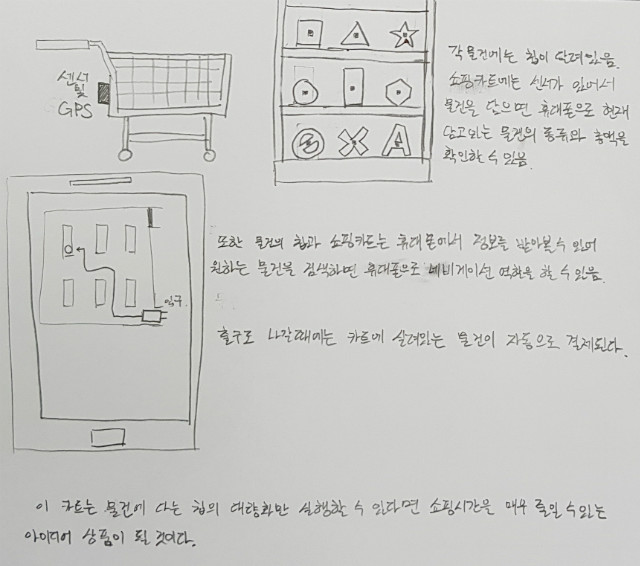 센서
및
GPS
각 물건에는 칩이 달려있음.
쇼핑카트에는 센서가 있어서
물건을 담으면 휴대폰으로 현재
담고있는 물건의 종류와 총액을
확인할 수 있음
입구
또한 물건의 칩과 쇼핑카트는 휴대폰에서 정보를 받아볼 수 있어
원하는 물건을 검색하면 휴대폰으로 네비게이션 역할을 할 수 있음.
출구로 나갈때에는 카트에 실려있는 물건이 자동으로 결제된다.
이 카트는 물건에 다는 칩의 대량화만 실행할 수 있다면 쇼핑시간을 매우 줄일 수 있는
아이디어 상품이 될 것이다.